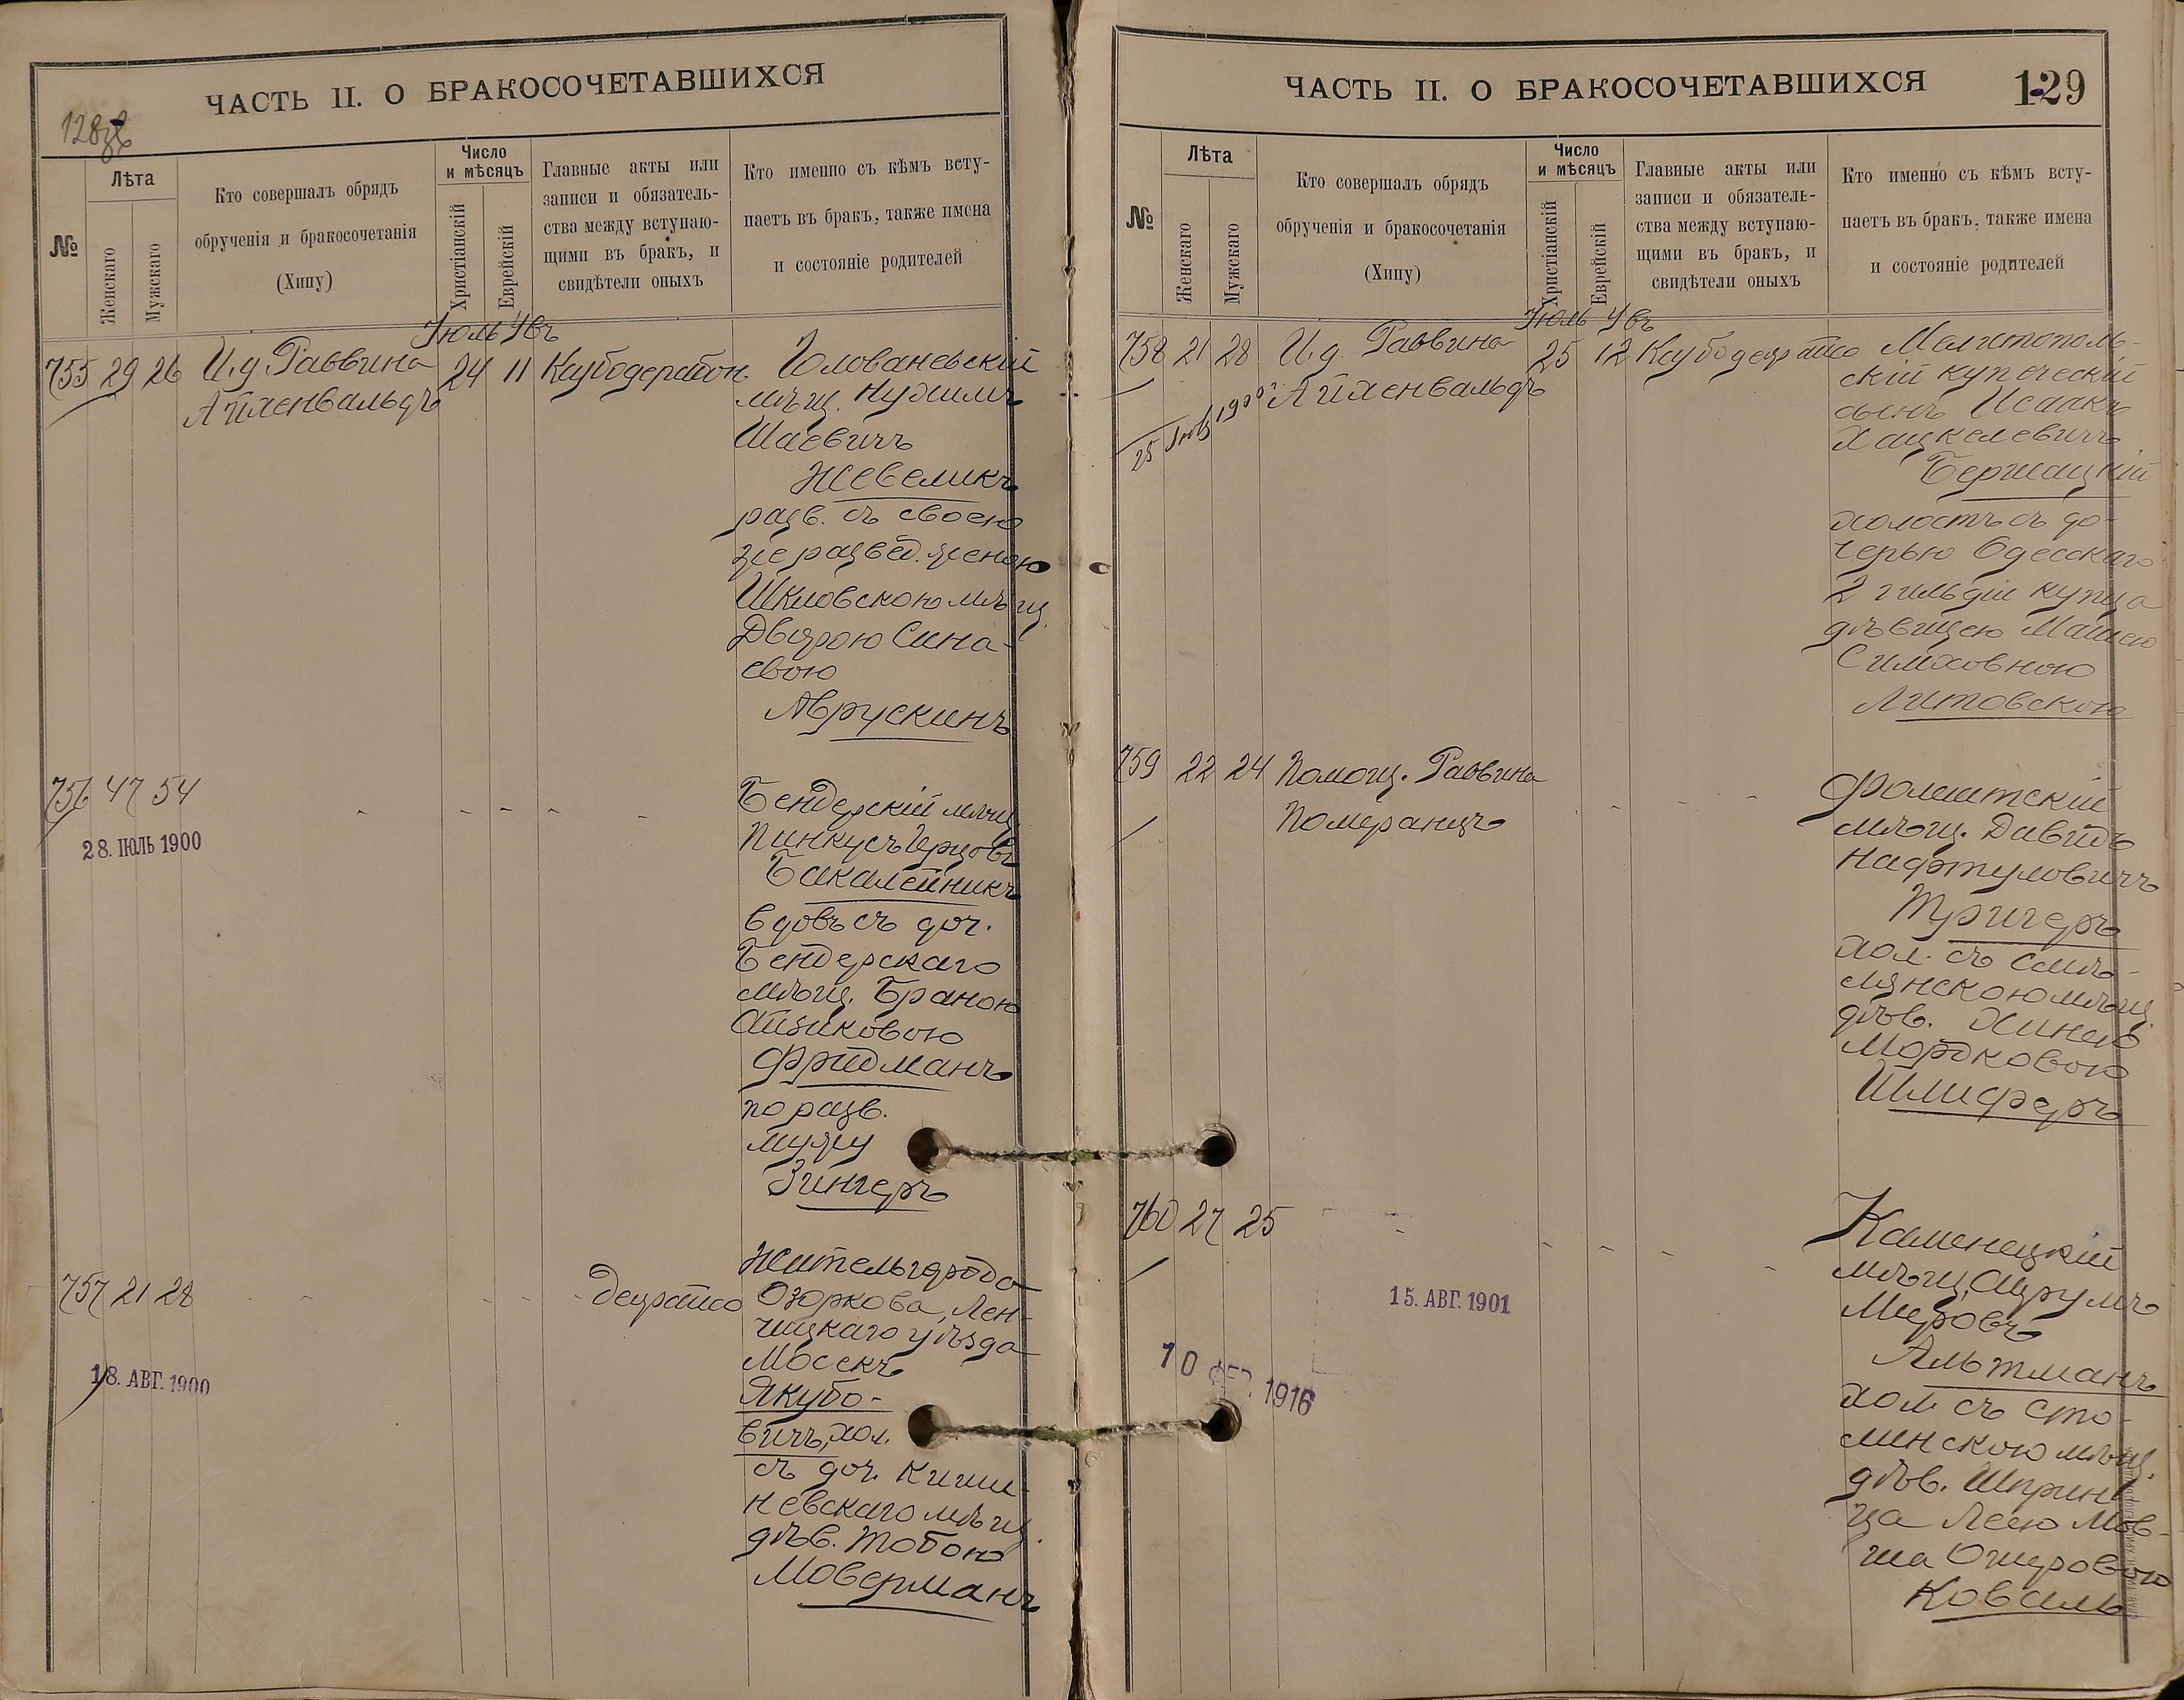 ЧАСТЬ II. О БРАКОСОЧЕТАВШИХСЯ
128
№
Лѣта
Женскаго
Мужскаго
Кто совершалъ обрядъ
обрученія и бракосочетанія
(Хипу)
Число
и мѣсяцъ
Христіанскій
Еврейскій
Главные акты или
записи и обязатель-
ства между вступаю-
щими въ бракъ, и
свидѣтели оныхъ
Кто именно съ кѣмъ всту-
паетъ въ бракъ, также имена
и состояніе родителей
Іюль Увъ
755 29 26 И.д. Раввина 24 11
Айхенвальдъ
Голованевскій
мѣщ. Нухимъ
Шаевичъ
Жевеликъ
разв. съ своею
же развед. женою
Шкловскою мѣщ.
Двейрою Сина-
евою
Аврускинъ
756 47 54
28. ІЮЛЬ 1900
Бендерскій мѣщ.
Пинкусъ Герцовъ
Бакалейникъ
вдовъ съ доч.
Бендерскаго
мѣщ. Браною
Айзиковою
Фридманъ
по разв.
мужу
Зингеръ
757 21 28
18. АВГ. 1900
Житель города
Озоркова, Лен-
чицкаго уѣзда
Мосекъ
Якубо-
вичъ, хол.
съ доч. Киши-
невскаго мѣщ.
дѣв. Тобою
Моверманъ
ЧАСТЬ II. О БРАКОСОЧЕТАВШИХСЯ
129
№
Лѣта
Женскаго
Мужскаго
Кто совершалъ обрядъ
обрученія и бракосочетанія
(Хипу)
Число
и мѣсяцъ
Христіанскій
Еврейскій
Главные акты или
записи и обязатель-
ства между вступаю-
щими въ бракъ, и
свидѣтели оныхъ
Кто именно съ кѣмъ всту-
паетъ въ бракъ, также имена
и состояніе родителей
Іюль Увъ
758 21 28 И.д. Раввина 25 12
Айхенвальдъ
25 1900
Мелитополь-
скій купеческій
сынъ Исаакъ
Хацкелевичъ
Бержацкій
холостъ съ до-
черью Одесскаго
2 гильдіи купца
дѣвицею Машею
Симховною
Литовскою
759 22 24 Помощ. Раввина
Померанцъ
Фолештскій
мѣщ. Давидъ
Нафтуловичъ
Тригеръ
хол. съ Смѣ-
лянскою мѣщ.
дѣв. Хинею
Мордковою
Шлиферъ
760 27 25
15. АВГ. 1901
10 ФЕВ. 1916
Каменецкій
мѣщ. Шрулъ
Меровъ
Альтманъ
хол. съ Сто-
линскою мѣщ.
дѣв. Шпринт
ца Леею Мов-
ша Ошеровою
Коваль